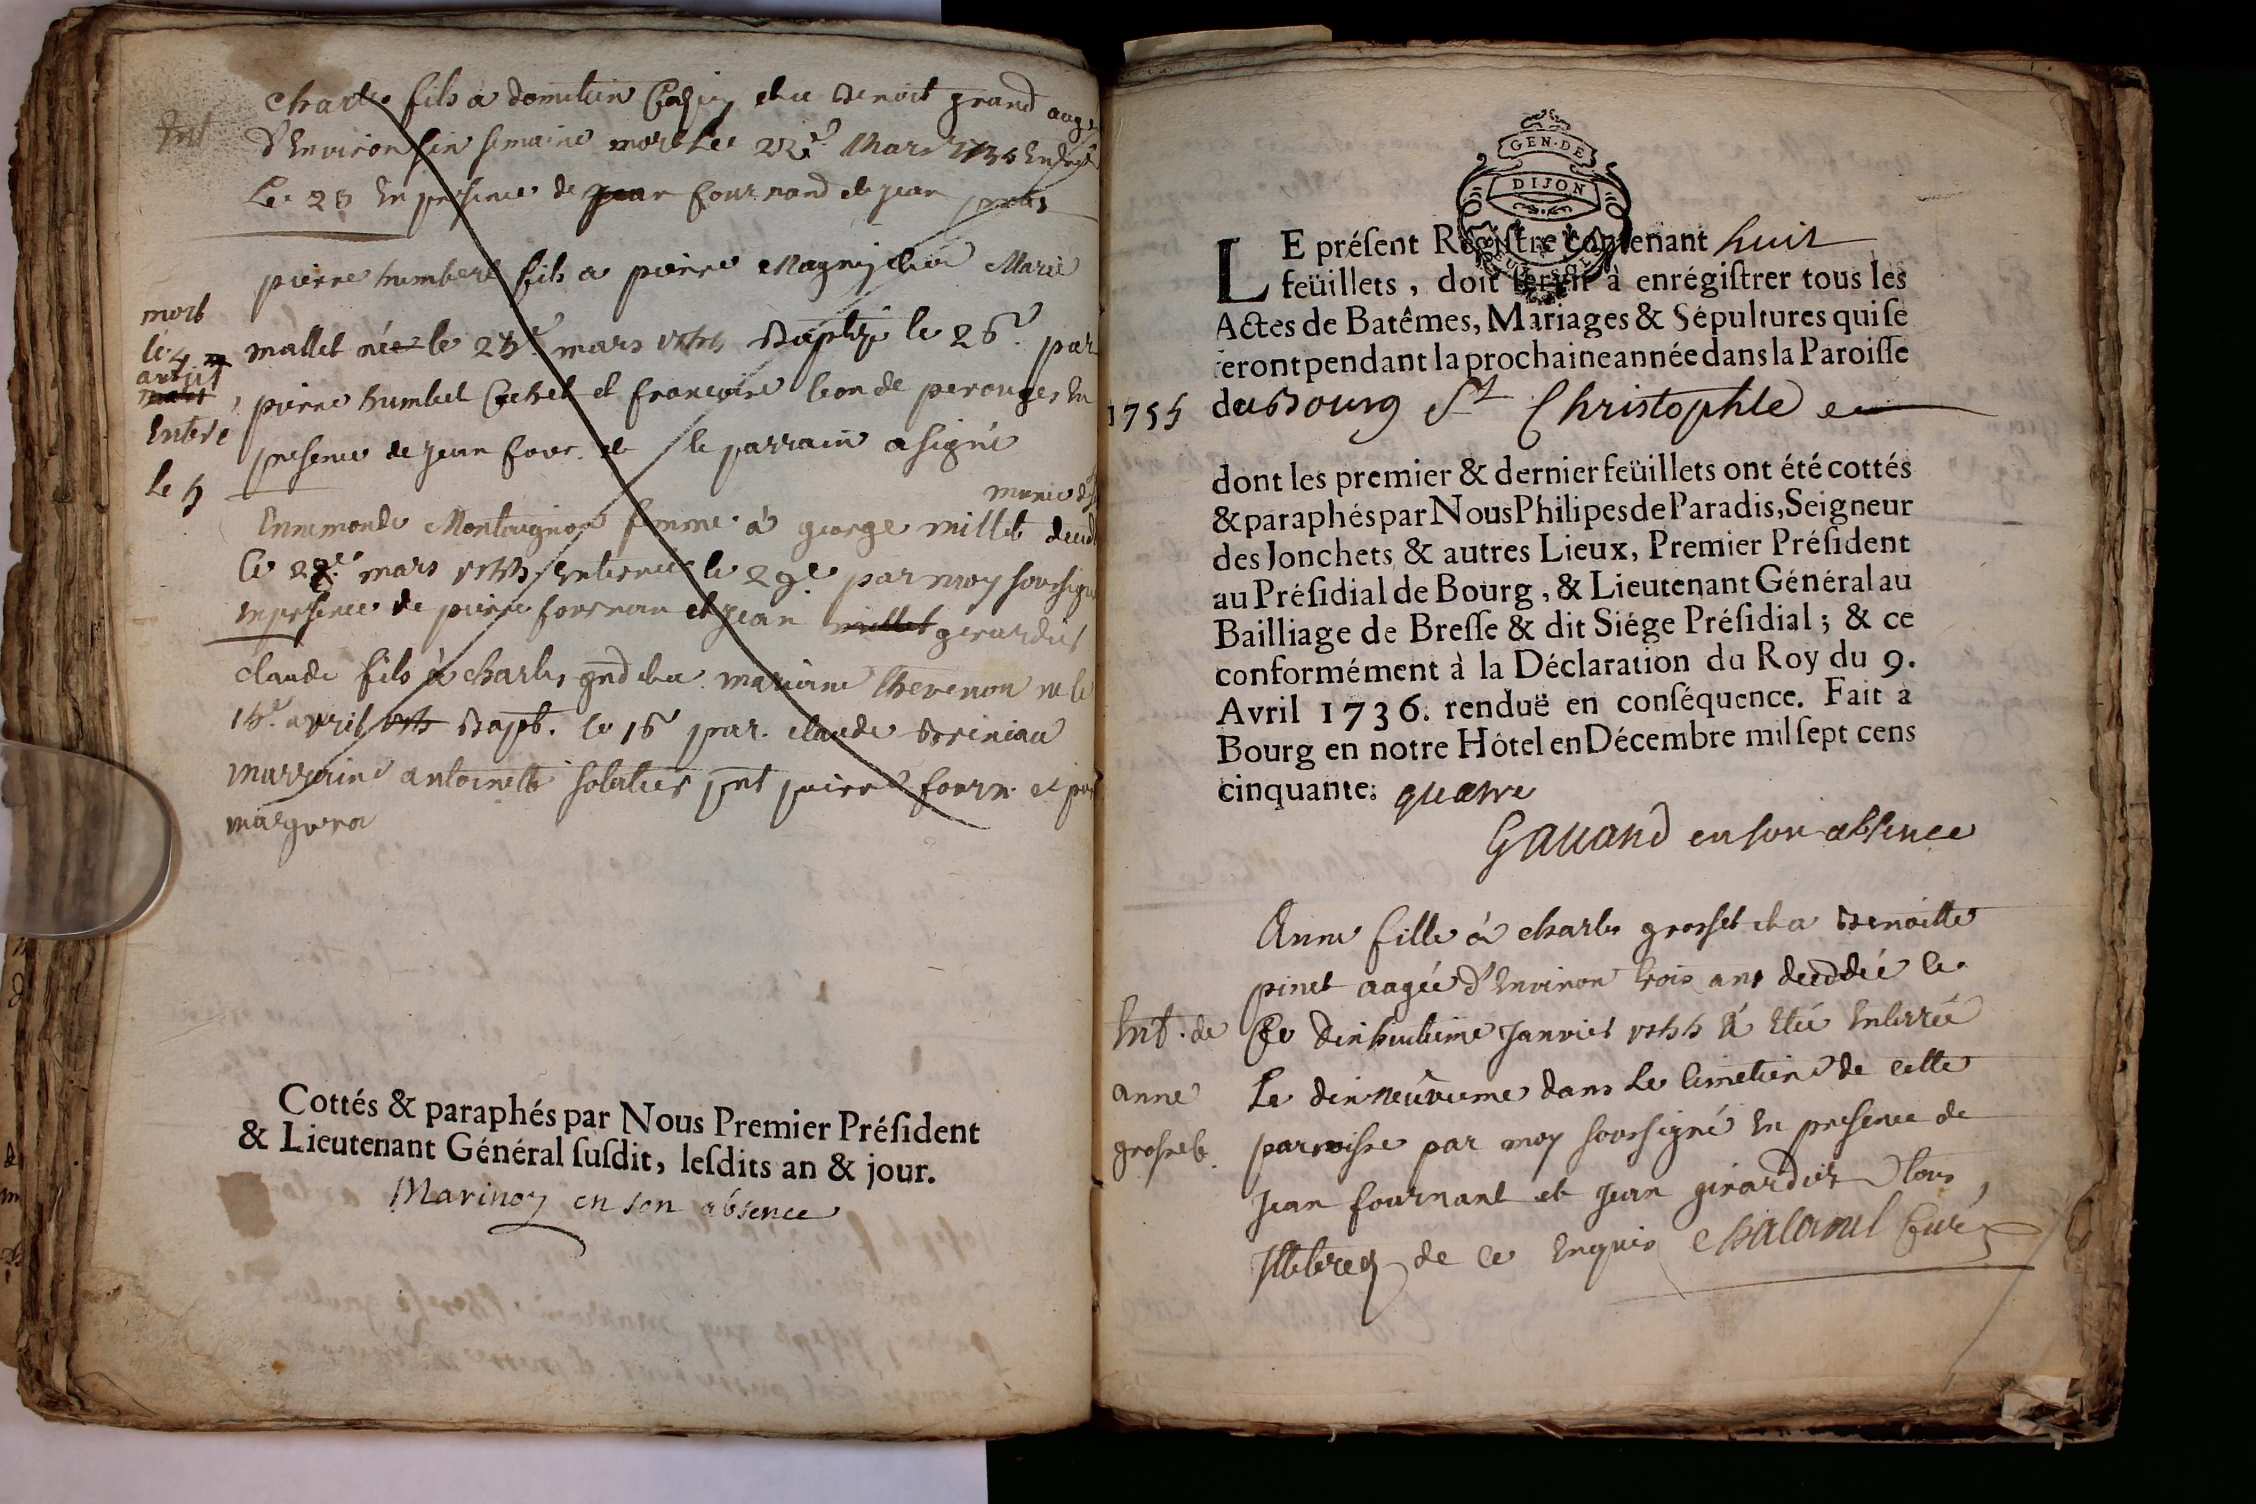 Ent
Charle fils a domitien et a Benoit grand aagé
d'Environ six semaine mort Le 22e Mars 1755
Le 23 En presence de jean fournand et jean
pierre humbert fils a pierre Magnij et a Marie
mallet née le 25e mars 1755 Baptizé le 26e par
pierre humbert Cochet et françoise leon de perouges En
presence de jean four. et le parrain a signé
mort
le 4
avril
mars
Enteré
le 5
munie d
Ennemonde Montagnon femme a george millet deced
le 28e mars 1755 Enterrée le 29e par moy soussigné
En presence de pierre fournan et jean millet girardier
claude fils a charles gnd et a mariane thevenon né le
15e avril 1755 Bapt. le 16e par claude Breniau
marraine antoinette solatier pnt pierre fourn. et
Cottés & paraphés par Nous Premier Président
& Lieutenant Général susdit, lesdits an & jour.
en son absence
GEN·DE
DIJON
LE présent Registre contenant huit
feüillets, doit servir à enrégistrer tous les
Actes de Batêmes, Mariages & Sépultures qui se
feront pendant la prochaine année dans la Paroisse
1755 de Bourg St Christophle
dont les premier & dernier feüillets ont été cottés
& paraphés par Nous Philipes de Paradis, Seigneur
des Jonchets & autres Lieux, Premier Président
au Présidial de Bourg, & Lieutenant Général au
Bailliage de Bresse & dit Siége Présidial; & ce
conformément à la Déclaration du Roy du 9.
Avril 1736. renduë en conséquence. Fait à
Bourg en notre Hôtel en Décembre mil sept cens
cinquante: quatre
Gauand en son absence
Ent. de
anne
grosset.
Anne fille à charles grosset et a Benoitte
pinet aagée d'Environ trois ans decedée le
Ce dixhuitieme Janvier 1755 à Eté Enterrée
Le dixneuvieme dans Le Cimetiere de cette
parroisse par moy soussigné En presence de
Jean fournant et Jean girardier tous
Illiterez de ce Enquis Chalaout Curé